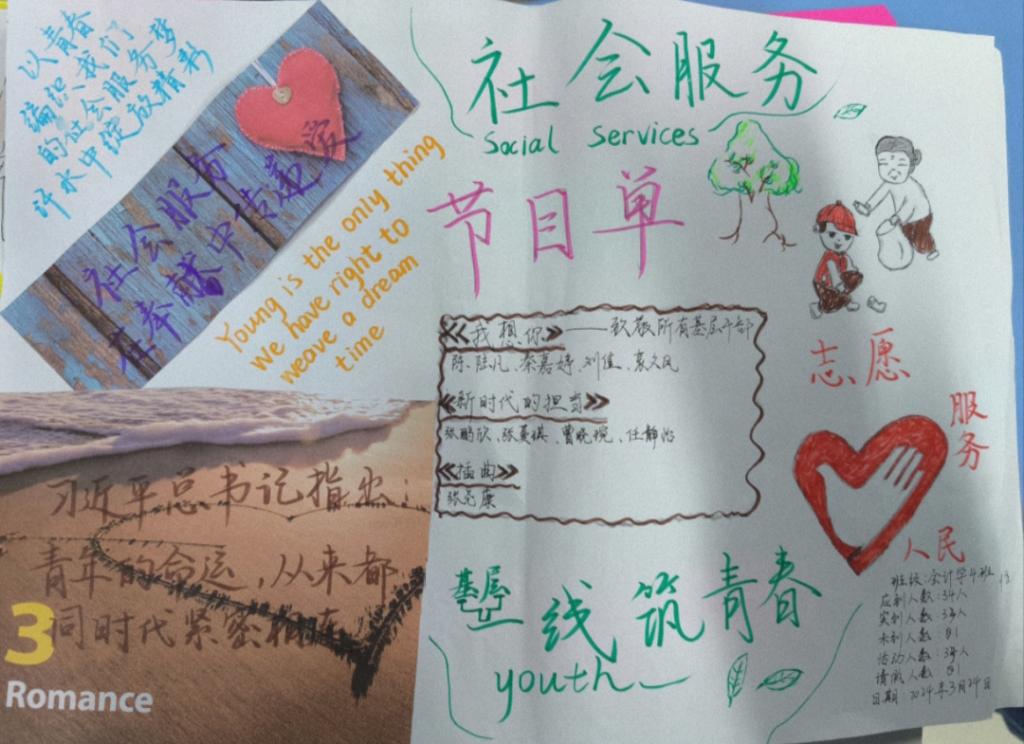 以青春
编织我们
的社会服务梦
汗水中绽放精彩
社会服务
在奉献中传递爱
Young is the only thing
we have right to
weave a dream
time
习近平总书记指出:
青年的命运,从来都
同时代紧密相连
3
Romance
社会服务
Social Services
节目单
《我想你》——致敬所有基层干部
陈陆凡、秦嘉婷、刘佳、袁久凤
《新时代的担当》
张鹏欣、张美琪、曹晓婉、任静怡
《插曲》
张亮康
志愿
服务
人民
基层
一线筑青春
youth
班级:会计学4班
应到人数:34人
实到人数:34人
未到人数:
活动人数:34人
请假人数:
日期:2024年3月24日